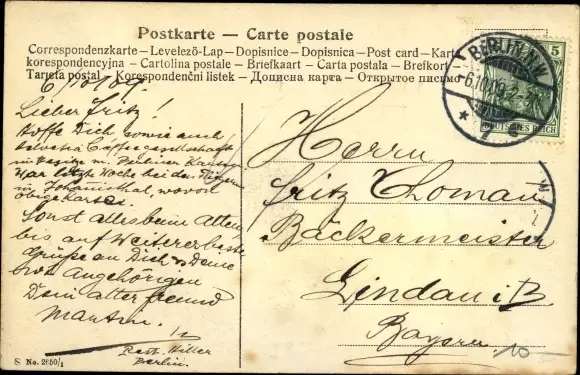 Postkarte — Carte postale
Correspondenzkarte — Levelező-Lap — Dopisnice — Dopisnica — Post card — Karta
korespondencyjna — Cartolina postale — Briefkaart — Carta postala — Brefkort
Tarjeta postal — Korespondenční listek — Дописна карта — Открытое письмо
BERLIN N.W.
6.10.09.
5
DEUTSCHES REICH
6/10/09.
Lieber Fritz!
Hoffe Dich sowie auch
Caffeegesellschaft
im Besitze m. Berliner Karten
War letzte Woche bei den Fliegern
in Johannisthal, wovon
obige Karte.
Sonst alles beim Alten
bis auf Weiteres beste
Grüße an Dich & Deine
Angehörigen
Dein alter Freund
Martin.
Rest. Hiller
Berlin.
Herrn
Fritz Thomann
Bäckermeister
Lindau i/B
Bayern
10
S No. 2650/1